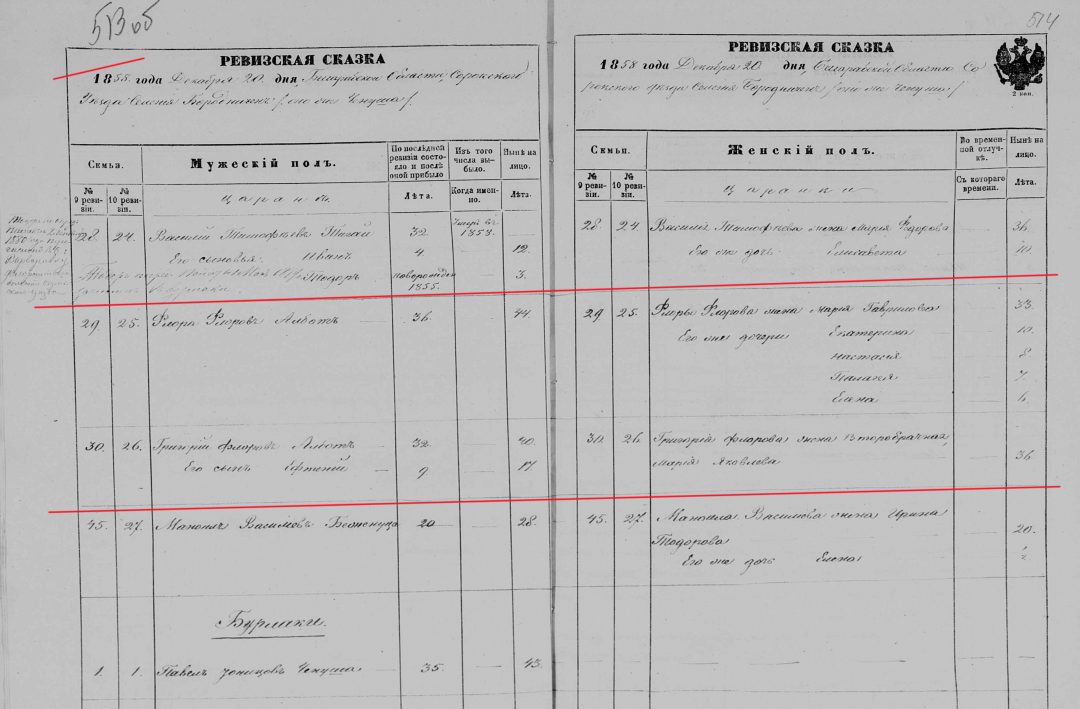 513 об
514
РЕВИЗСКАЯ СКАЗКА
1858. года Декабря 20. дня, Бессарабской Области, Сорокскаго
Уезда Селенiя
оно же Чепуша /.
№ 9 ревизiи.
№ 10 ревизiи.
Семьи.
Мужескiй полъ.
По последней ревизiи состояло и после оной прибыло
Изъ того числа выбыло.
Ныне на лицо.
Лѣта.
Когда именно.
Лѣта.
Царане.
28. 24. Василiй Тимофѣевъ 32. 1853.
Его сыновья: Иванъ 4. 12.
Тодоръ новорожден 1855. 3.
29 25. Флоря Флоровъ Алботъ 36. — 44.
30. 26. Григорiй Флоровъ Алботъ 32. — 40.
Его сынъ Ефтенiй — 9. — 17
45. 27. Манойлъ Василiевъ 20 — 28.
Бурлаки.
1. 1. Павелъ Чепуша 35. — 43.
РЕВИЗСКАЯ СКАЗКА
2 коп.
1858 года Декабря 20. дня, Бессарабской Области Со
рокскаго уезда Селенiя / оно же Чепуша /
Семьи.
Женскiй полъ.
Во временной отлучкѣ.
Ныне на лицо.
№ 9 ревизiи.
№ 10 ревизiи.
Съ котораго времени.
Лѣта.
Царанки
28. 24. Василiя Тимофѣева жена Марiя Федорова 36.
Его же дочь Елисавета — 10.
29 25. Флоры Флорова жена Марiя Гаврилова 33.
Его же дочери Екатерина — 10.
Настасiя — 8.
Палагея — 7.
Елена — 6.
30. 26. Григорiя Флорова жена второбрачная,
Марiя Яковлева — 36.
45. 27. Манойла Василiова жена Ирина
Тодорова — 20.
Его же дочь Елена